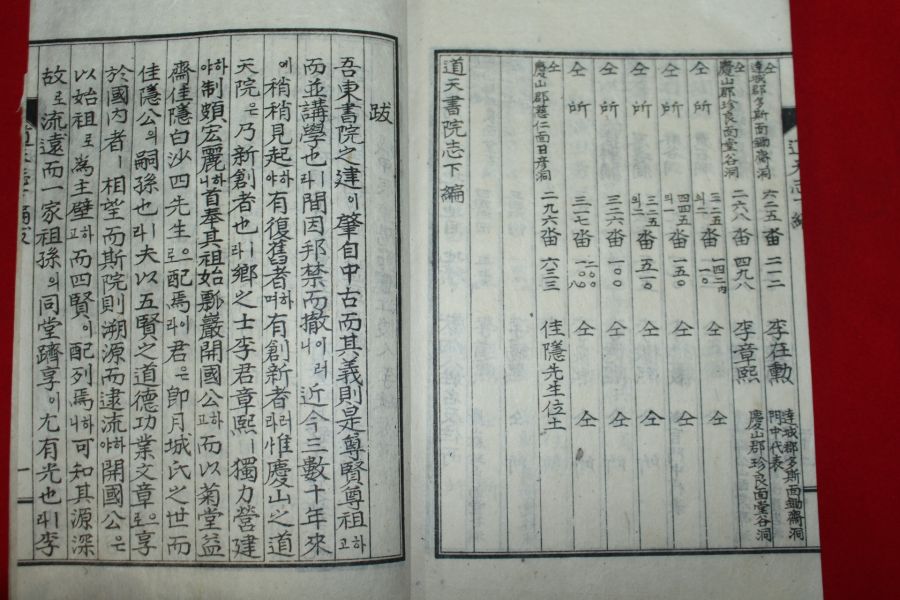 仝 達城郡多斯面鋤齋洞 六二五 畓 二一二 李在勲 達城郡多斯面鋤齋洞 門中代表
仝 慶山郡珍良面堂谷洞 二六八 畓 四九八 李章熙 慶山郡珍良面堂谷洞
仝 所 三一五의二 畓 一四二內一一〇 仝 仝
仝 所 四四五의一 畓 一五〇 仝 仝
仝 所 三二五의二 畓 五一〇 仝 仝
仝 所 三二六 畓 一〇〇 仝 仝
仝 所 三一七 畓 仝 仝
仝 慶山郡慈仁面日彦洞 二九六 畓 六三三 佳隱先生位土
道天書院志下編
跋
吾東書院之建이肇自中古而其義則是尊賢尊祖하고
而並講學也라間因邦禁而撤이러니近今三數十年來
에稍稍見起하야有復舊者하며有創新者러라惟慶山之道
天院은乃新創者也라鄕之士李君章熙ㅣ獨力營建
하야制頗宏麗하니首奉其祖始瓢巖開國公하고而以菊堂益
齋佳隱白沙四先生으로配焉이라君은卽月城氏之世而
佳隱公의嗣孫也라夫以五賢之道德功業文章으로享
於國內者ㅣ相望而斯院則溯源而逮流하야開國公은
以始祖로爲主壁하고而四賢이配列焉하니可知其源深
故로流遠而一家祖孫의同堂躋享이尤有光也라李
一